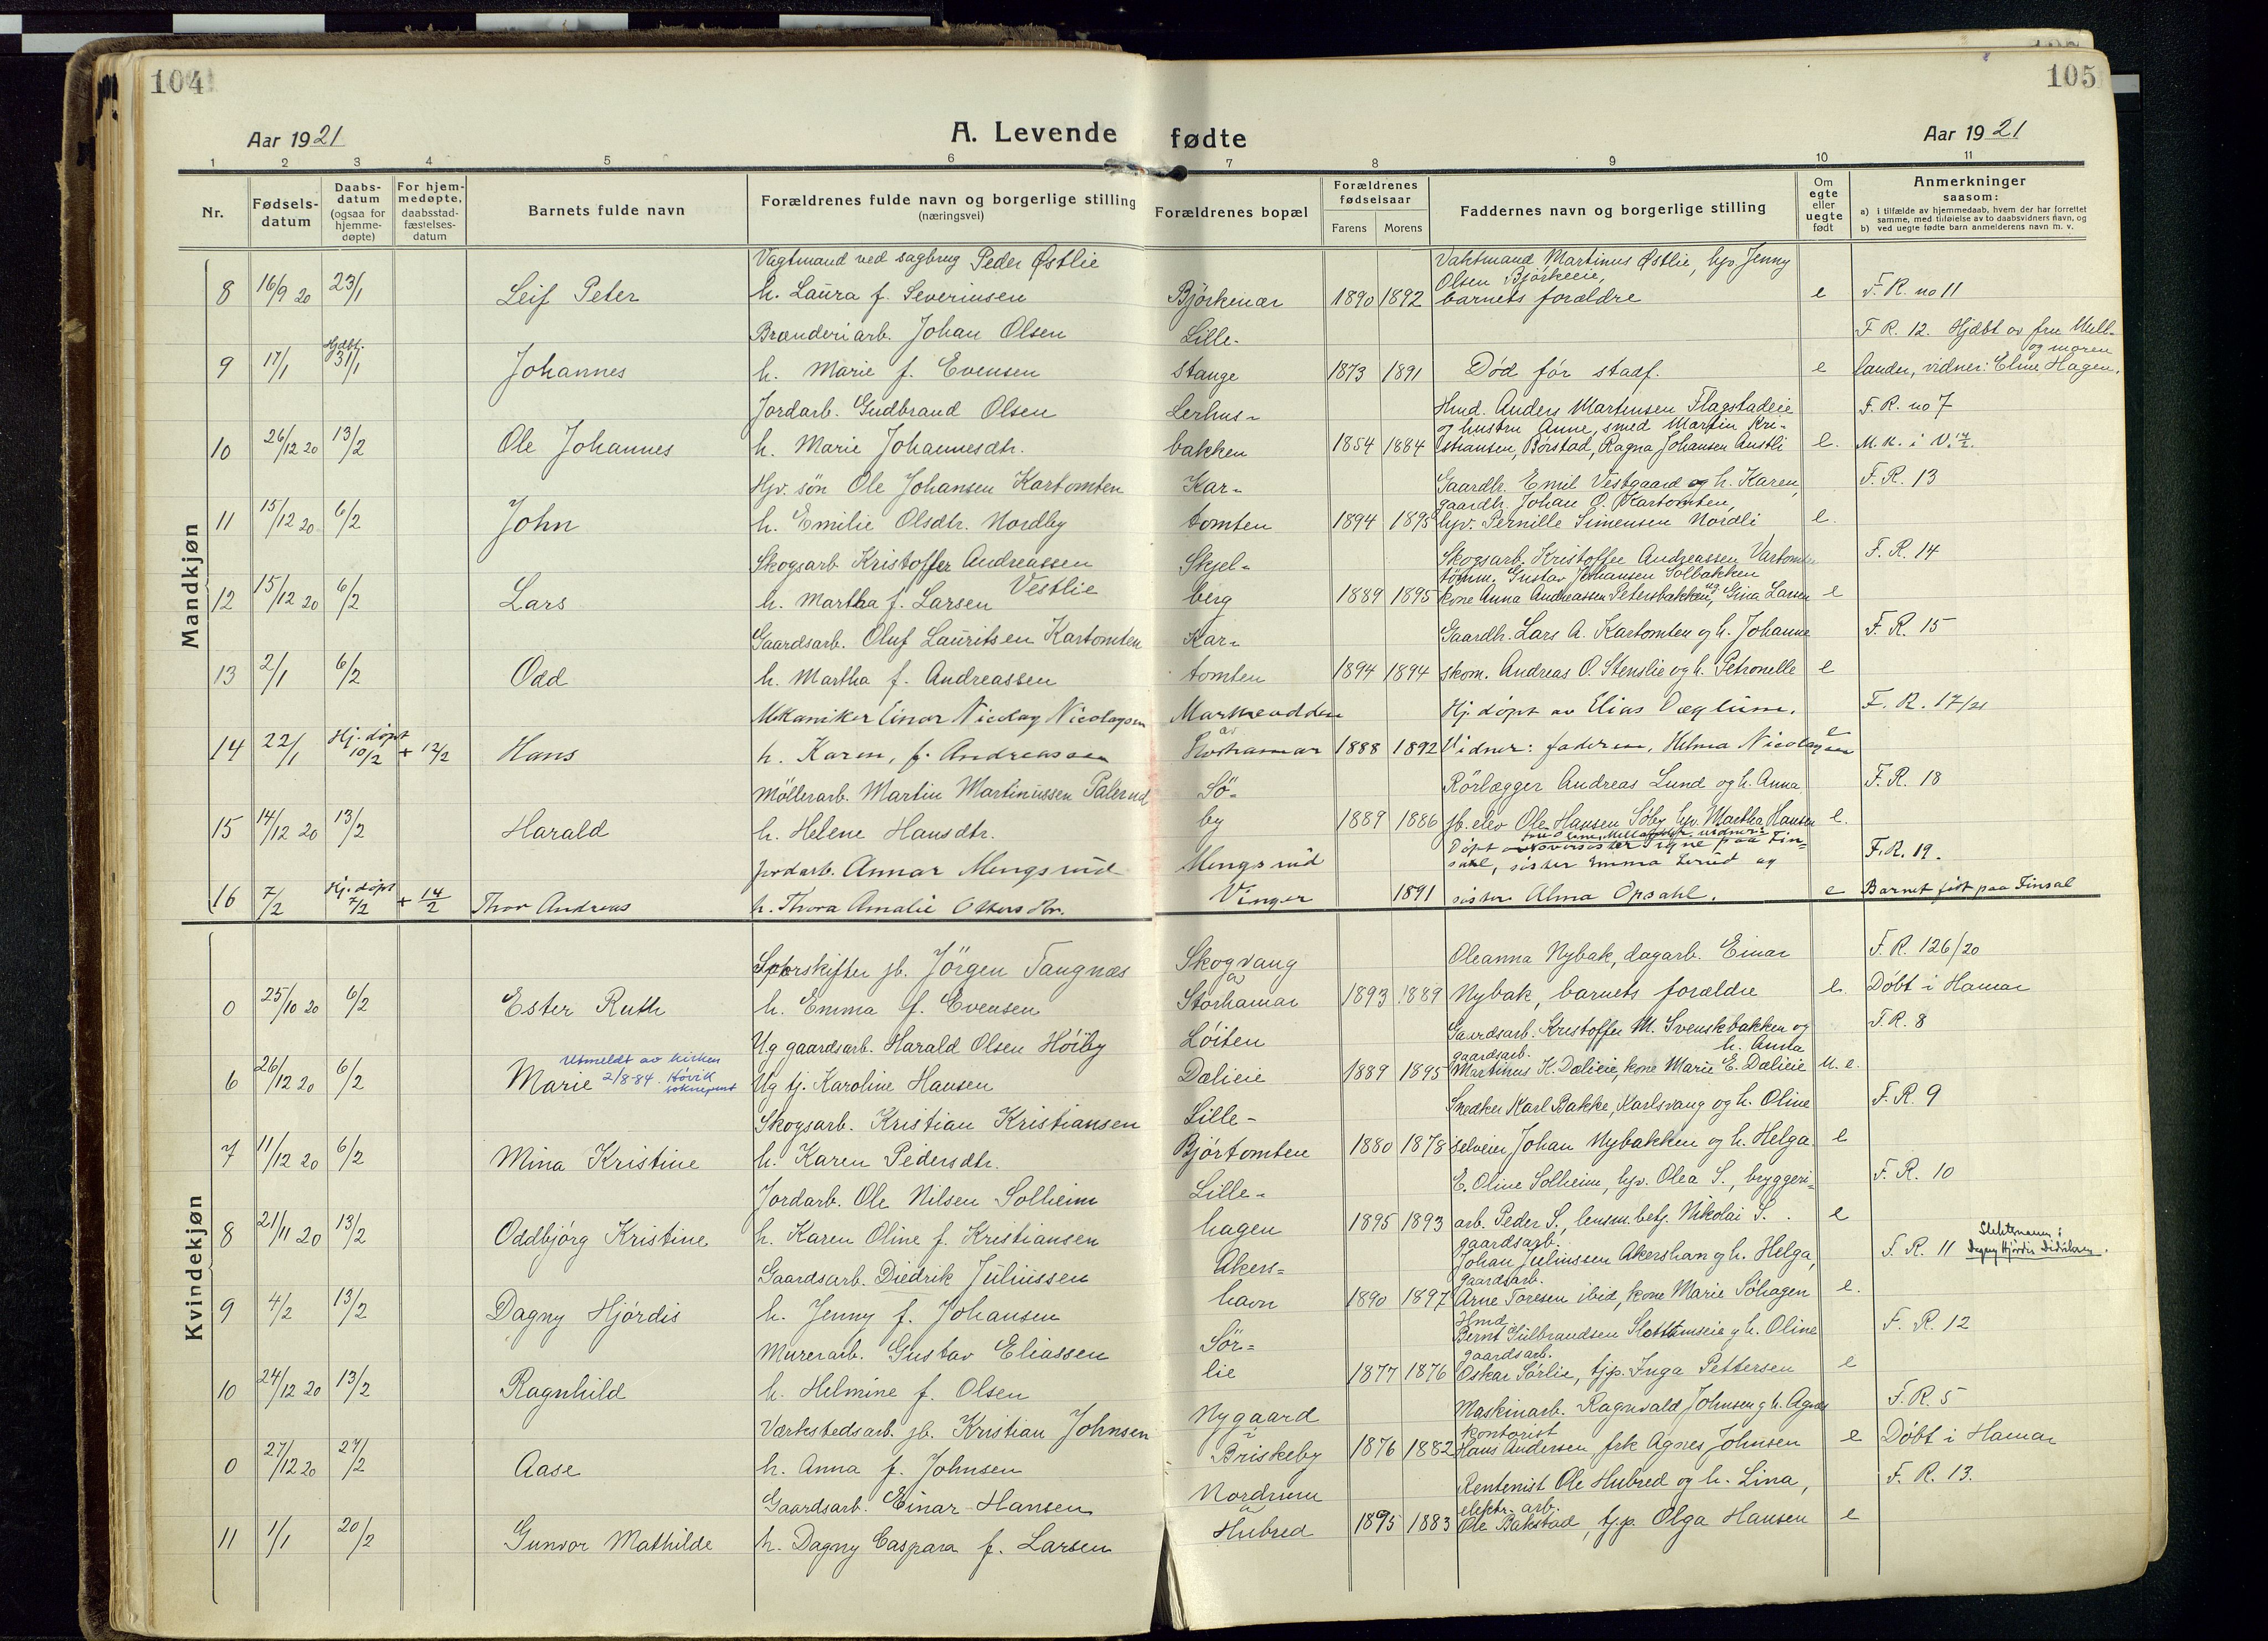 104
105
Aar 1921
A. Levende fødte
Aar 1921
1 2 3 4 5 6 7 8 9 10 11
Nr.
Fødsels-datum
Daabs-datum (ogsaa for hjemme-døpte)
For hjem-medøpte, daabsstad-fæstelses-datum
Barnets fulde navn
Forældrenes fulde navn og borgerlige stilling (næringsvei)
Forældrenes bopæl
Forældrenes fødselsaar
Farens Morens
Faddernes navn og borgerlige stilling
Om egte eller uegte født
Anmerkninger saasom:
a) i tilfælde av hjemmedaab, hvem der har forrettet samme, med tilføielse av to daabsvidners navn, og
b) ved uegte fødte barn anmelderens navn m. v.
Mandkjøn
Vagtmand ved sagbrug Peder Østlie Vahtmand Martinus Østlie, hjv. Jenny
Olsen Bjørkeeie,
8 16/9 20 23/1 Leif Peter h. Laura f. Severinsen Bjørkenær 1890 1892 barnets forældre e F. R. no 11
Brænderiarb. Johan Olsen Lille- F R. 12. Hjdbt av fru Mell-
og moren
9 17/1 Hjdbt. 31/1 Johannes h. Marie f. Evensen Stange 1873 1891 Död før stadf. e lander, vidner: Eline Hagen.
Jordarb. Gudbrand Olsen Lerhus- Hmd. Anders Martinsen Flagstadeie F. R. no 7
og hustru Anne, smed Martin Kri-
10 26/12 20 13/2 Ole Johannes h. Marie Johannesdtr. bakken 1854 1884 stiansen, Børstad, Ragna Johansen Austli e. M. K. i V.
Hjv. søn Ole Johansen Kartomten Kar- Gaardbr. Emil Vestgaard og h. Karen, F. R. 13
gaardbr. Johan O. Kartomten,
11 15/12 20 6/2 John h. Emilie Olsdtr. Nordby tomten 1894 1895 hjv. Pernille Simensen Nordli e.
Skogsarb. Kristoffer Andreassen Vestlie Skjel- Skogsarb. Kristoffer Andreassen F. R. 14
tömm. Gustav Johansen Solbakken
12 15/12 20 6/2 Lars h. Martha f. Larsen berg 1889 1895 kone Anna Andreassen Petersbakken, og Gina Larsen e
Gaardsarb. Oluf Lauritsen Kartomten Kar- Gaardbr. Lars A. Kartomten og h. Johanne F. R. 15
13 2/1 6/2 Odd h. Martha f. Andreassen tomten 1894 1894 skom. Andreas O. Stenslie og h. Petronelle e
Mekaniker Einar Nicolay Nicolaysen Markeodden Hj. döpt av Elias Dæglum. F. R. 17/21
14 22/1 Hj. döpt 10/2 + 12/2 Hans h. Karen, f. Andreassen av Storhamar 1888 1892 Vidner: faderen, Helma Nicolaysen e
Möllerarb. Martin Martinussen Pålerud Sö- Rörlægger Andreas Lund og h. Anna F. R. 18
15 14/12 20 13/2 Harald h. Helene Hansdtr. by 1889 1886 jb. elev Ole Hansen Söby hjv. Martha Hansen e.
Jordarb. Annar Mengsrud Mengsrud Döpt Signe paa Fin- F. R. 19.
sal, sister Emma Lerud og
16 7/2 Hj. döpt 7/2 + 14/2 Thor Andreas h. Thora Amalie Ottersdtr. Vinger 1891 sister Alma Opsahl. e Barnet født paa Finsal
Kvindekjøn
Sporskifter jb. Jörgen Tangnæs Skogvang Oleanna Nybak, dagarb. Einar F. R. 126/20
av
0 25/10 20 6/2 Ester Ruth h. Emma f. Evensen Storhamar 1893 1889 Nybak, barnets forældre e. Döbt i Hamar
Ug gaardsarb. Harald Olsen Höiby Löiten Gaardsarb. Kristoffer M. Svenskbakken og h. Anna F. R. 8
Utmeldt av kirken 2/8-84. Høvik sokneprest gaardsarb.
6 26/12 20 6/2 Marie Ug tj. Karoline Hansen Dælieie 1889 1895 Martinus K. Dælieie, kone Marie E. Dælieie u. e.
Skogsarb. Kristian Kristiansen Lille- Snedker Karl Bakke, Karlsvang og h. Oline F. R. 9
7 11/12 20 6/2 Mina Kristine h. Karen Pedersdtr. Bjørtomten 1880 1878 selveier Johan Nybakken og h. Helga e
Jordarb. Ole Nilsen Solheim Lille- E. Oline Solheim, hjv. Olea S., bryggeri- F. R. 10
8 21/11 20 13/2 Oddbjørg Kristine h. Karen Oline f. Kristiansen hagen 1895 1893 arb. Peder S., lensm.betj. Nikolai S. e
gaardsarb. Slektsnavn:
Gaardsarb. Diedrik Juliussen Akers- Johan Juliussen Akershavn og h. Helga, F. R. 11 Dagny Hjørdis Didriksen.
gaardsarb.
9 4/2 13/2 Dagny Hjördis h. Jenny f. Johansen havn 1890 1897 Arne Toresen ibid, kone Marie Söhagen e.
Hmd.
Murerarb. Gustav Eliassen Sör- Bernt Gulbrandsen Slottumseie og h. Oline F. R. 12
gaardsarb.
10 24/12 20 13/2 Ragnhild h. Helmine f. Olsen lie 1877 1876 Oskar Sørlie, tjp. Inga Pettersen e
Værkstedsarb. jb. Kristian Johnsen Nygaard Maskinarb. Ragnvald Johnsen og h. Agnes F. R. 5
i kontorist
0 27/12 20 27/2 Aase h. Anna f. Johnsen Briskeby 1876 1882 Hans Andersen frk Agnes Johnsen e Döbt i Hamar
Gaardsarb. Einar Hansen Nordrum Rentenist Ole Hubred og h. Lina, F. R. 13.
a elektr. arb.
11 1/1 20/2 Gunvor Mathilde h. Dagny Caspara f. Larsen Hubred 1895 1883 Ole Bakstad, tjp. Olga Hansen e